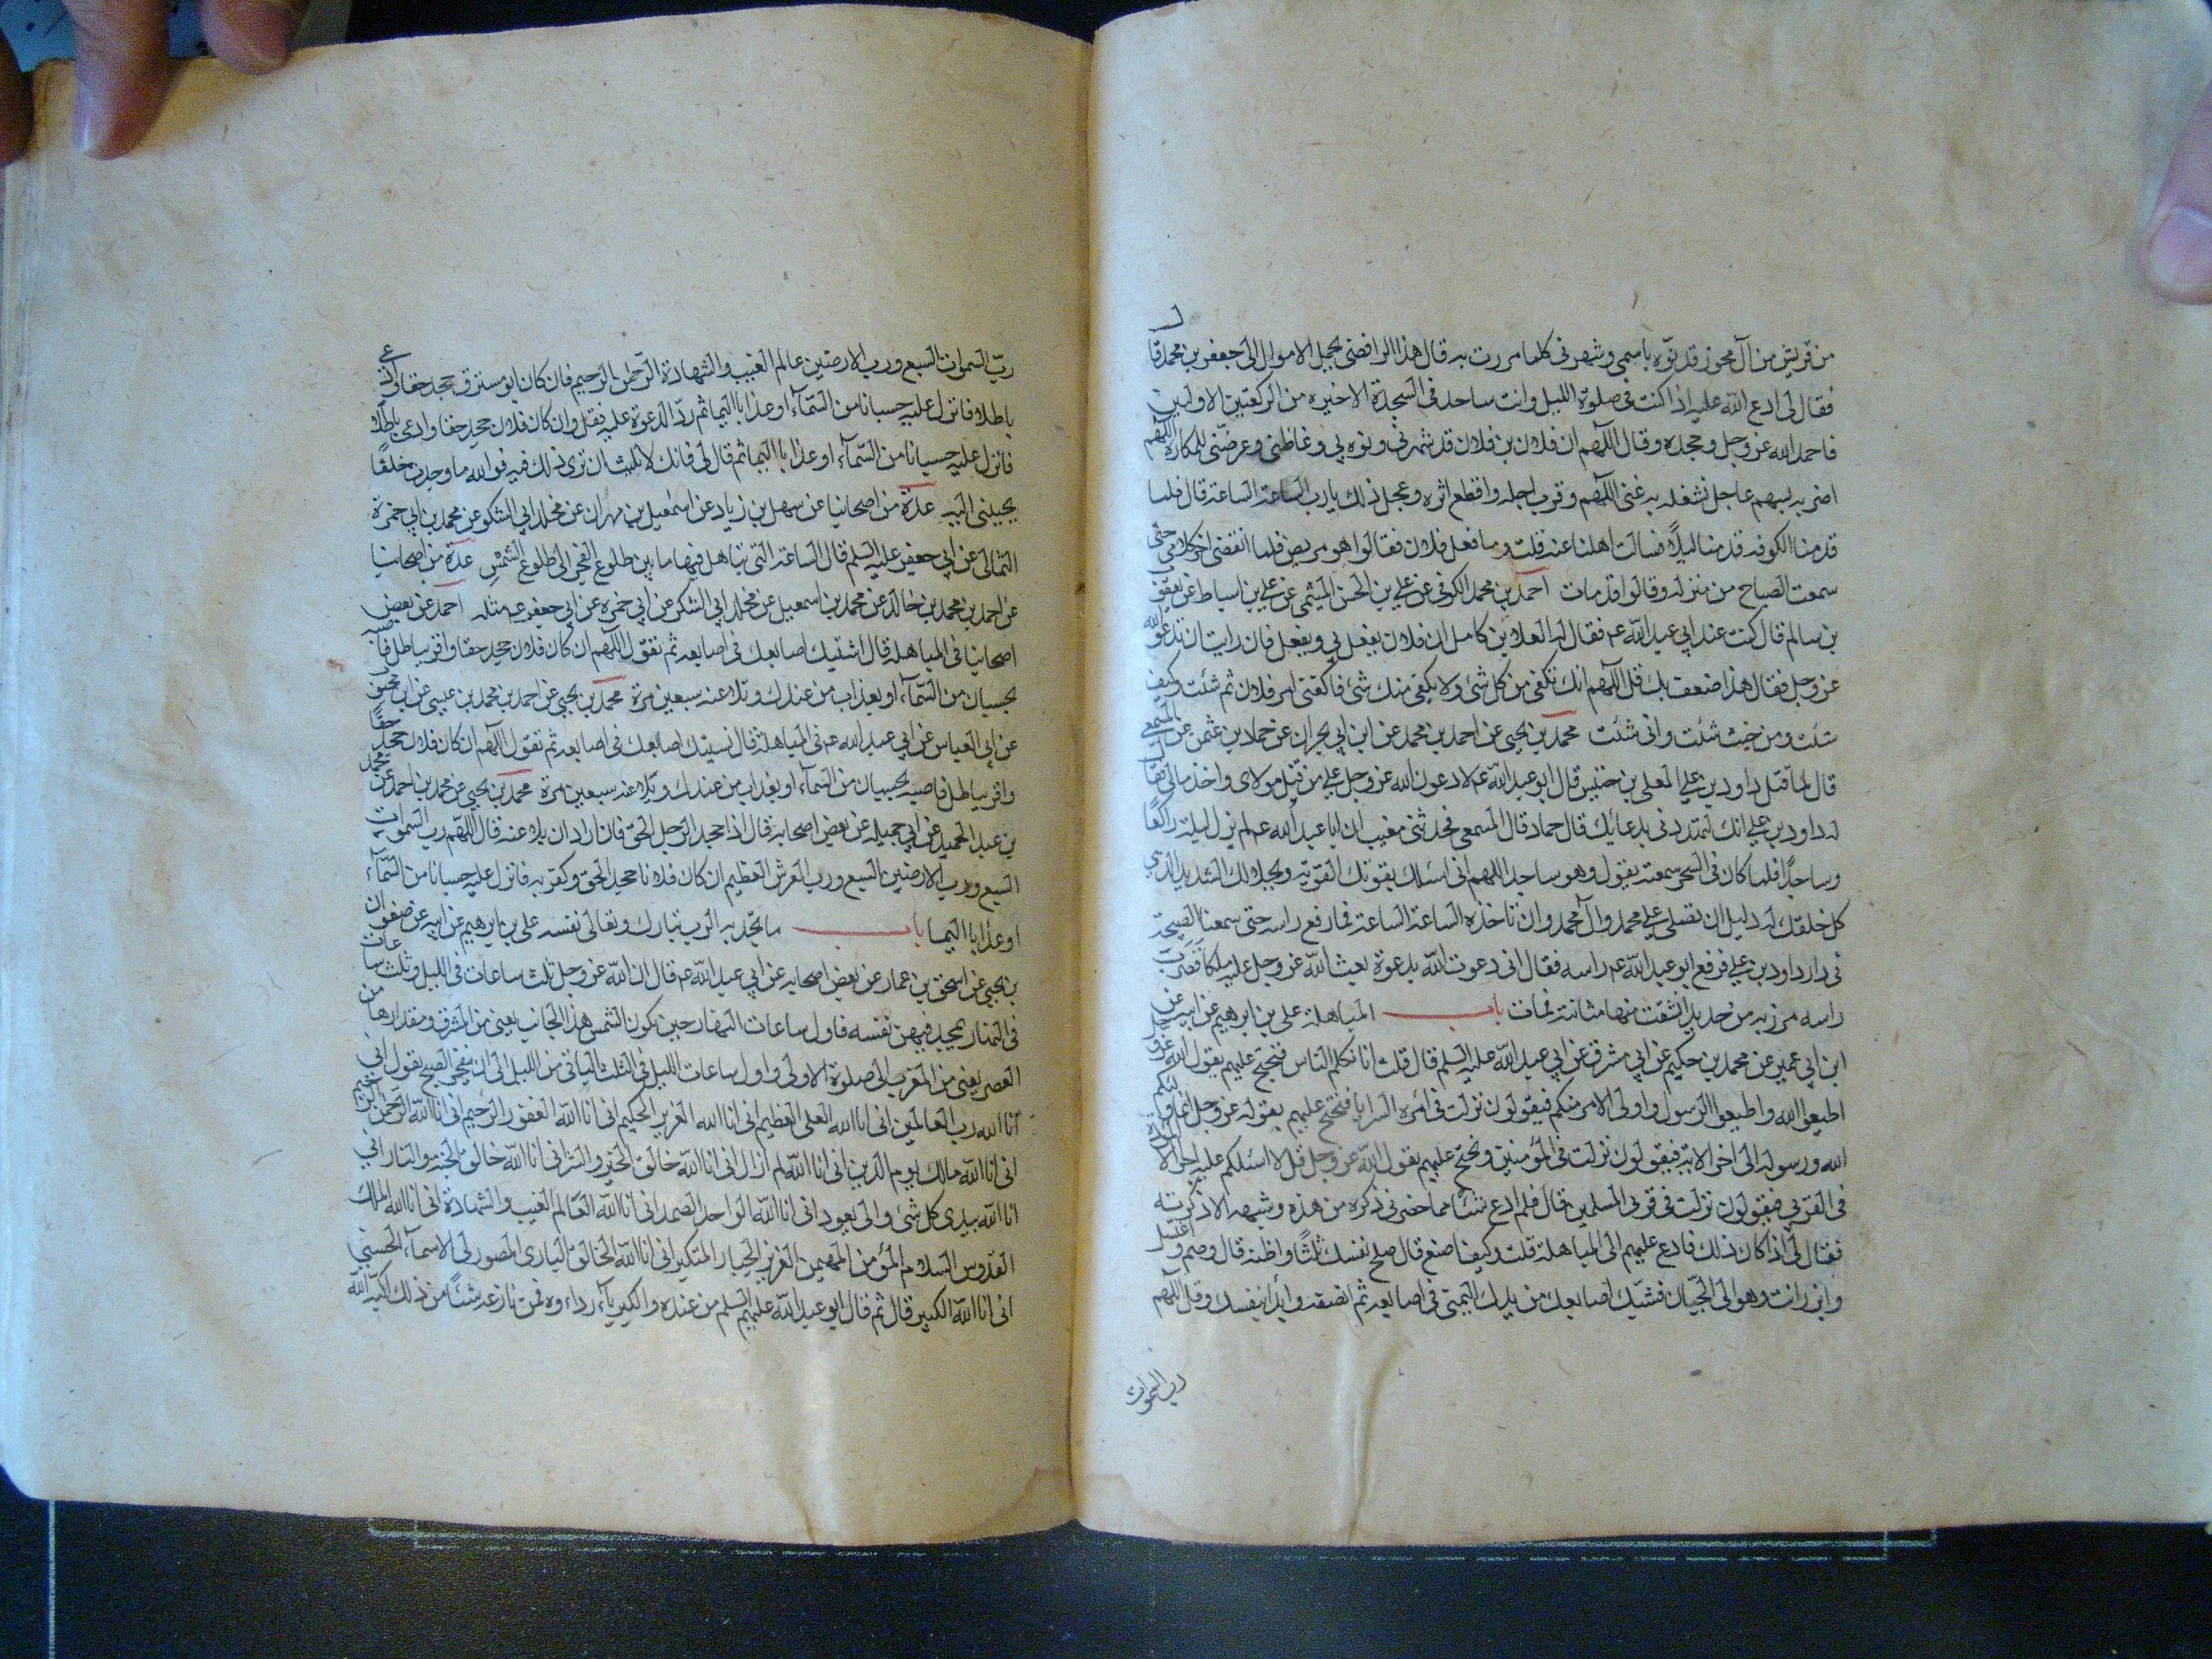 من قريش من آل محرز قد نوّه باسمي وشهرني كلما مررت به قال هذا الرافضي يحمل الاموال الى جعفر بن محمد قال
فقال لي ادع الله عليه اذا كنت في صلوة الليل وانت ساجد في السجدة الاخيره من الركعتين الاوليين
فاحمد الله عز وجل ومجده وقال اللهم ان فلان بن فلان قد شهرني ونوه بي وغاظني وعرضني للمكاره اللهم
اضربه بسهم عاجل تشغله به عني اللهم وقرب اجله واقطع اثره وعجل ذلك يا رب الساعة الساعة قال فلما
قدمنا الكوفه قدمنا ليلاً فسالت اهلنا عنه قلت وما فعل فلان فقالوا هو مريض فلما انقضى اخر كلامي حتى
سمعت الصياح من منزله وقالوا قد مات احمد بن محمد الكوفي عن علي بن الحسن الميثمي عن علي بن اسباط عن يعقوب
بن سالم قال كنت عند ابي عبد الله عم فقال له العلا بن كامل ان فلان يفعل بي ويفعل فان رايت ان تدعو الله
عز وجل فقال هذا ضعف بك قل اللهم انك تكفي من كل شئ ولا يكفي منك شئ فاكفني امر فلان ثم شئت وكيف
شئت ومن حيث شئت وانى شئت محمد بن يحيى عن احمد بن محمد عن ابن ابي نجران عن حماد بن عثمن عن المسمعي
قال لما قتل داود بن علي المعلى بن خنيس قال ابو عبد الله عم لادعون الله عز وجل على من قتل مولاي واخذ مالي فقال
له داود بن علي انك لتهددني بدعائك قال حماد قال المسمعي فحدثني معتب ان ابا عبد الله عم لم يزل ليلته راكعًا
وساجدًا فلما كان في السحر سمعته يقول وهو ساجد اللهم اني اسئلك بقوتك القوية وبجلالك الشديد الذي
كل خلقك له ذليل ان تصلي على محمد وال محمد وان تاخذه الساعة الساعة فما رفع راسه حتى سمعنا الصيحة
في دار داود بن علي فرفع ابو عبد الله عم راسه فقال اني دعوت الله بدعوة بعث الله عز وجل عليه ملكا فضرب
راسه مرزبه من حديد انشقت منها مثانته فمات باب المباهلة علي بن ابرهيم عن ابيه عن
ابن ابي عمير عن محمد بن حكيم عن ابي مشرق عن ابي عبد الله عليه السلم قال قلت انا نكلم الناس فنحتج عليهم بقول الله عز وجل
اطيعوا الله واطيعوا الرسول واولى الامر منكم فيقولون نزلت في امره السرايا فنحتج عليهم بقوله عز وجل انما وليكم
الله ورسوله الى اخر الاية فيقولون نزلت في المؤمنين ونحتج عليهم بقول الله عز وجل قل لا اسئلكم عليه اجرا الا المودة
في القربى فيقولون نزلت في قربى المسلمين قال فلم ادع شئا مما حضرني ذكره من هذه وشبهه الا ذكرته
فقال لي اذا كان ذلك فادع عليهم الى المباهلة قلت وكيف اصنع قال صلح نفسك ثلثًا واظنه قال وصم واغتسل
وابرز انت وهو الى الجبّان فشبك اصابعك من يدك اليمنى في اصابعه ثم انصفه وابدأ بنفسك وقل اللهم
رب السموات
رب السموات السبع ورب الارضين عالم الغيب والشهادة الرحمن الرحيم فان كان ابو مسترق جحد حقا وادعى
باطلا فانزل عليه حسبانا من السمآء او عذابا اليما ثم ردّ الدعوة عليه فقل وان كان فلان جحد حقا وادعى باطلا
فانزل عليه حسبانا من السمآء او عذابا اليما ثم قال لي فانك لا تلبث ان ترى ذلك فيه فوالله ما وجدت خلقًا
يجيبني اليه عدة من اصحابنا عن سهل بن زياد عن اسمعيل بن مهران عن مخلد ابي الشكر عن محمد بن ابي حمزة
الثمالي عن ابي جعفر عليه السلم قال الساعة التي تباهل فيها ما بين طلوع الفجر الى طلوع الشمس عدة من اصحابنا
عن احمد بن محمد بن خالد عن محمد بن اسمعيل عن مخلد ابي الشكر عن ابي حمزه عن ابي جعفر عم مثله احمد عن بعض
اصحابنا في المباهلة قال اشتبك اصابعك في اصابعه ثم تقول اللهم ان كان فلان جحد حقا واقر بباطل فاصبه
بحسبان من السمآء او بعذاب من عندك وتلاعنه سبعين مرة محمد بن يحيى عن احمد بن محمد بن عيسى عن ابن محبوب
عن ابي العباس عن ابي عبد الله عم في المباهلة قال تشبك اصابعك في اصابعه ثم تقول اللهم ان كان فلان جحد حقًا
واقر بباطل فاصبه بحسبان من السمآء او بعذاب من عندك وتلاعنه سبعين مرة محمد بن يحيى عن محمد بن احمد عن محمد
بن عبد الحميد عن ابي جميله عن بعض اصحابه قال اذا جحد الرجل الحق فان اراد ان يلاعنه قال اللهم رب السموات
السبع ورب الارضين السبع ورب العرش العظيم ان كان فلانا جحد الحق وكفر به فانزل عليه حسبانا من السمآء
او عذابا اليما باب ما يمجد به الرب تبارك وتعالى نفسه علي بن ابرهيم عن ابيه عن صفوان
بن يحيى عن اسحق بن عمار عن بعض اصحابه عن ابي عبد الله عم قال ان الله عز وجل ثلث ساعات في الليل وثلث ساعات
في النهار يمجد فيهن نفسه فاول ساعات النهار حين تكون الشمس هذا الجانب يعني من المشرق ومقدارها من
العصر يعني من المغرب الى صلوة الاولى واول ساعات الليل في الثلث الباقي من الليل الى ان ينفجر الصبح يقول اني
انا الله رب العالمين اني انا الله العلي العظيم اني انا الله العزيز الحكيم اني انا الله الغفور الرحيم اني انا الله الرحمن الرحيم
اني انا الله مالك يوم الدين اني انا الله لم ازال اني انا الله خالق الخير والشر اني انا الله خالق الجنة والنار اني
انا الله بدى كل شئ والي يعود اني انا الله الواحد الصمد اني انا الله العالم الغيب والشهادة اني انا الله الملك
القدوس السلام المؤمن المهيمن العزيز الجبار المتكبر اني انا الله الخالق البارى المصور لي الاسمآء الحسنى
اني انا الله الكبير قال ثم قال ابو عبد الله عليهم السلم من عنده والكبريآء رداوه فمن نازعه شئًا من ذلك اكبه الله